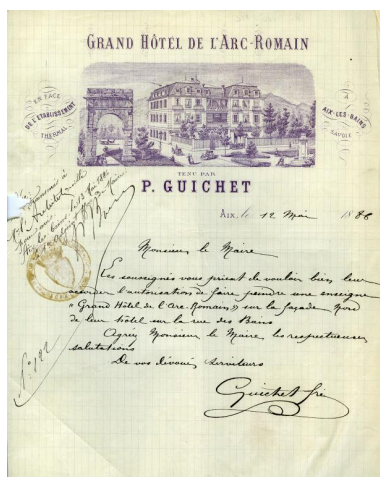 GRAND HÔTEL DE L'ARC-ROMAIN
EN FACE
DE L'ÉTABLISSEMENT
THERMAL
À
AIX-LES-BAINS
SAVOIE
TENU PAR
P. GUICHET
AIX, le 12 Mai 1886
Monsieur le Maire
Les soussignés vous prient de vouloir bien leur
accorder l'autorisation de faire peindre une enseigne
"Grand Hôtel de l'Arc-Romain" sur la façade Nord
de leur hôtel sur la rue des Bains
Agréez Monsieur le Maire les respectueuses
salutations
De vos dévoués serviteurs
Guichet
N° 122